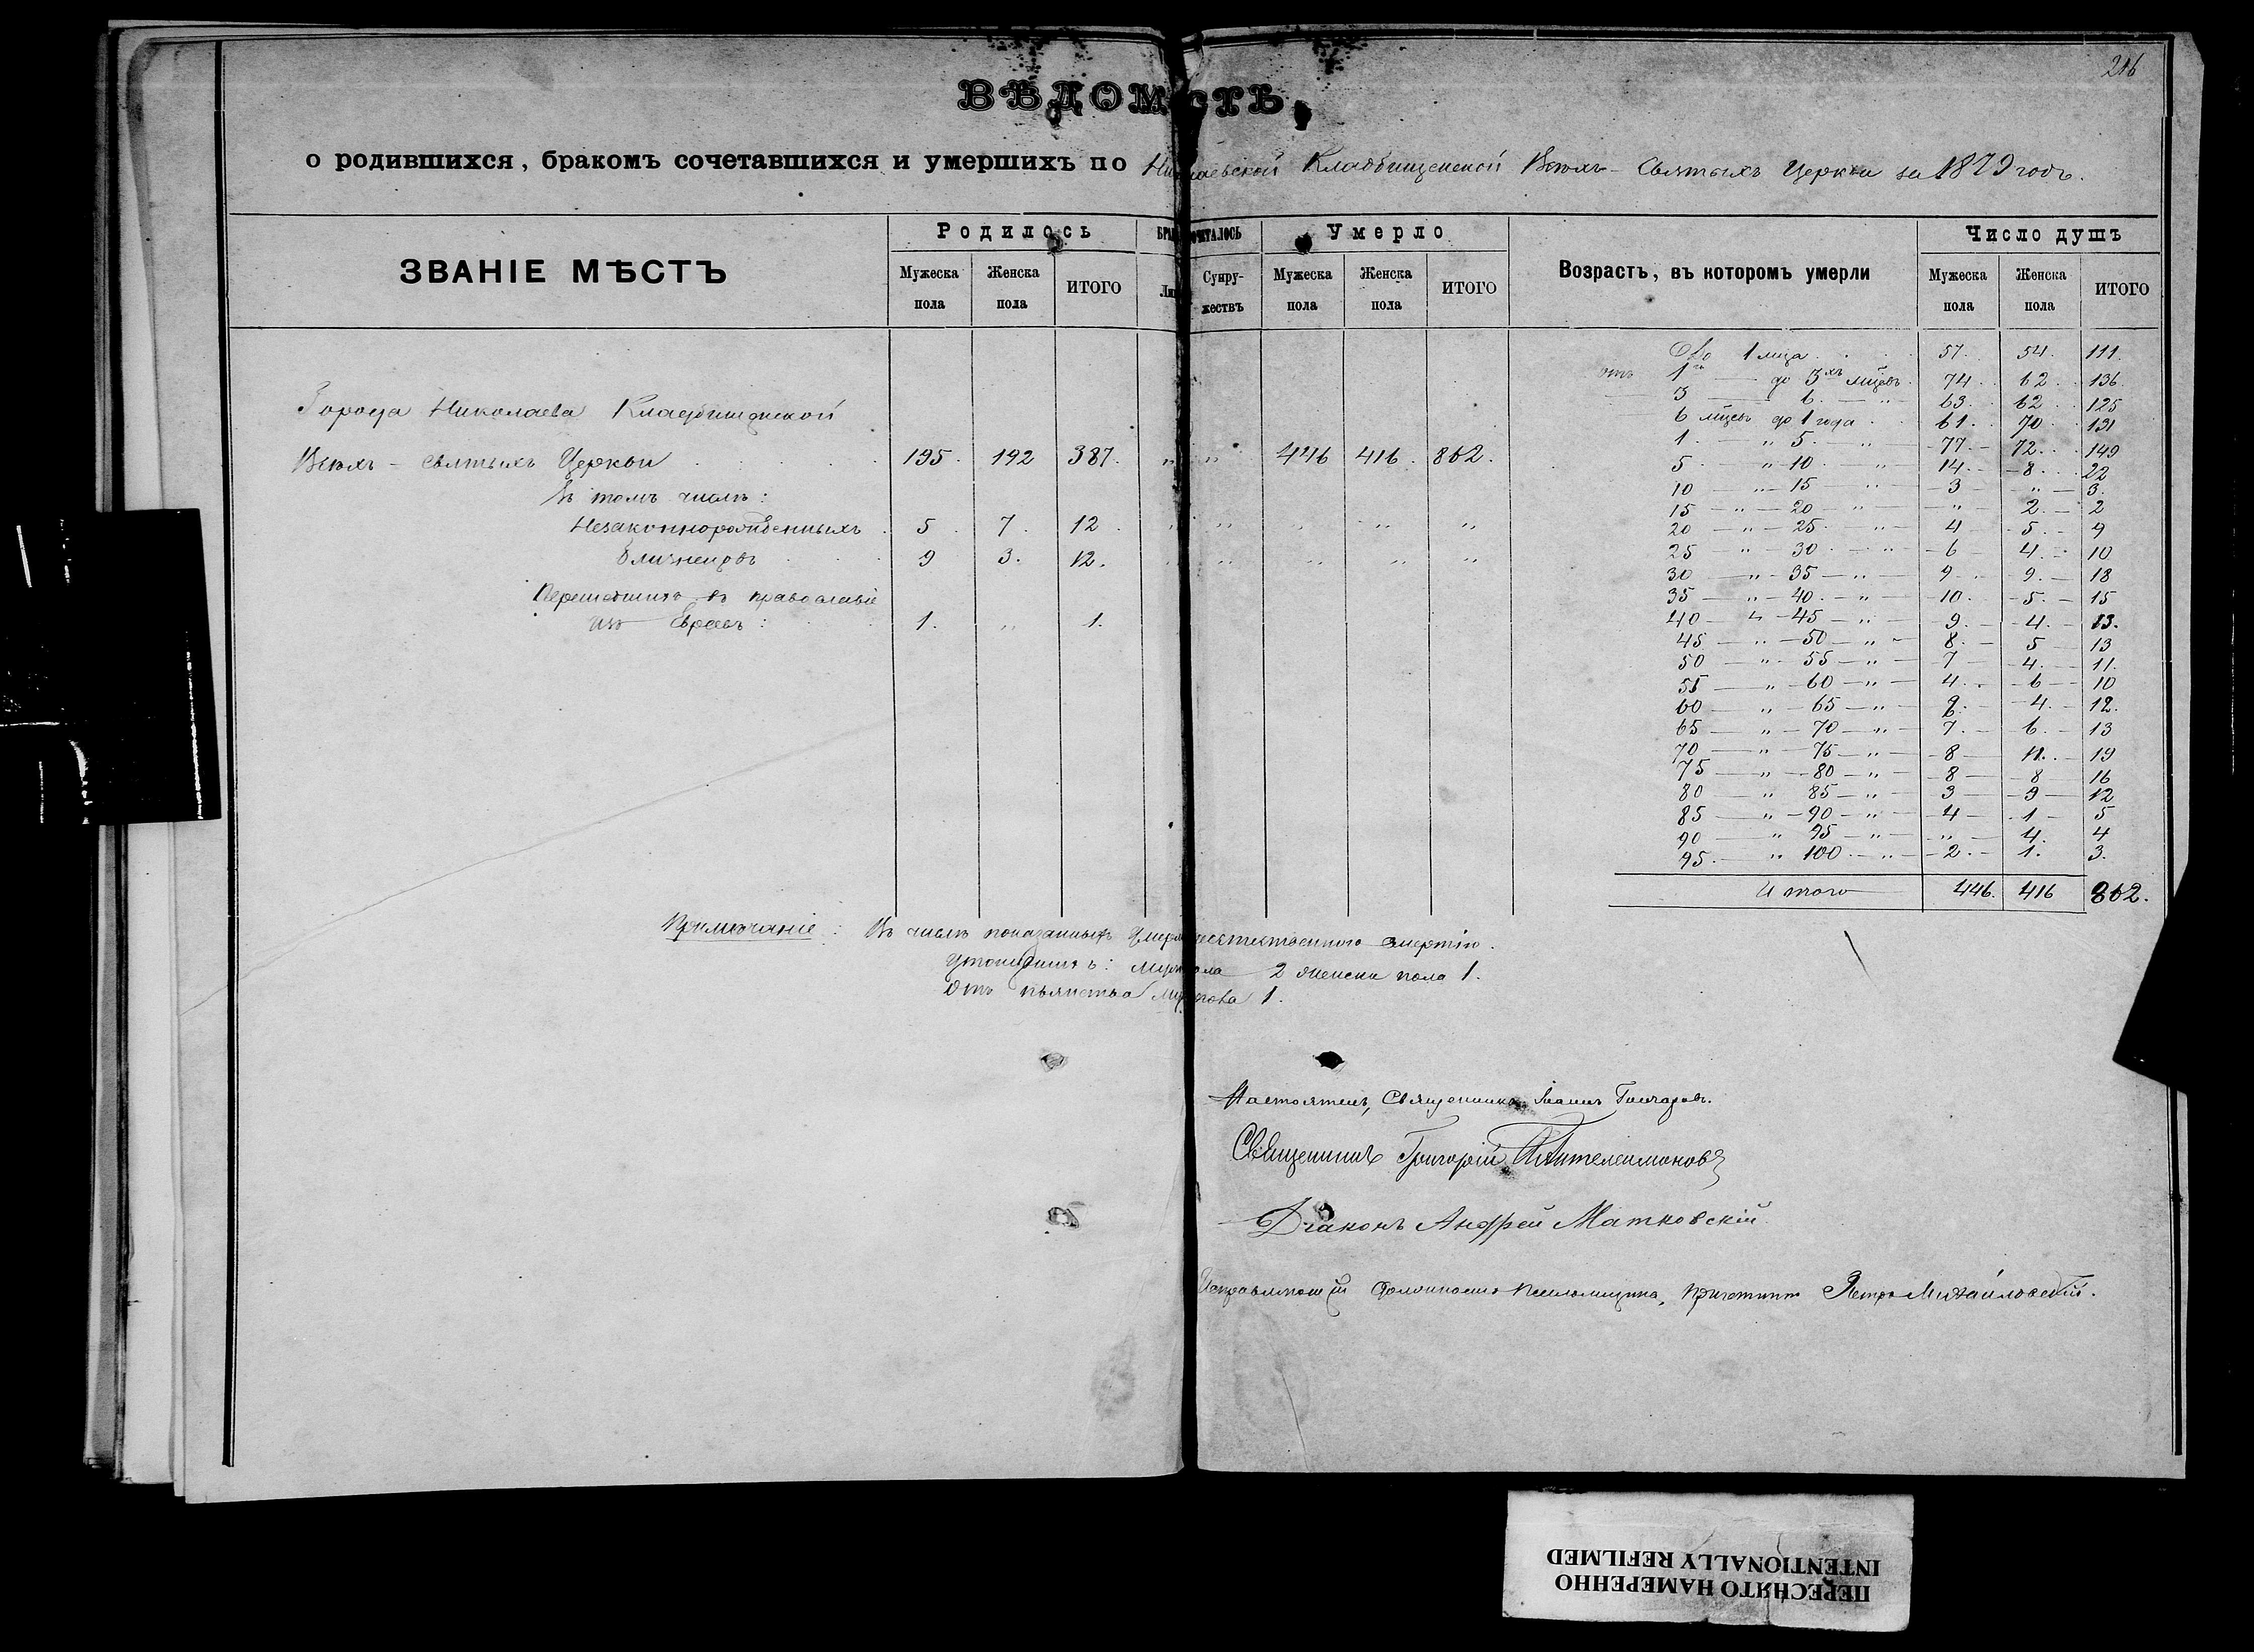 216
ВѢДОМОСТЬ,
о родившихся, бракомъ сочетавшихся и умершихъ по Николаевской Кладбищенской Всѣхъ-Святыхъ Церкви за 1879 годъ.
ЗВАНІЕ МѢСТЪ
Родилось
Мужеска пола
Женска пола
ИТОГО
Супру-жествъ
Умерло
Мужеска пола
Женска пола
ИТОГО
Возрастъ, въ которомъ умерли
Число душъ
Мужеска пола
Женска пола
ИТОГО
Города Николаева Кладбищенской
Всѣхъ-Святыхъ Церкви 195. 192 387. " " 446 416. 862.
Въ томъ числѣ:
Незаконнорожденныхъ 5 7. 12 " " " " "
Близнецовъ 9 3. 12. " " " " "
Перешедшихъ въ православіе
изъ Евреевъ: 1. " 1.
До 1 мѣца 57. 54. 111.
отъ 1го до 3хъ мѣцевъ 74. 62. 136.
3 6 " 63. 62. 125
6 мѣцевъ до 1 года 61. 70. 131
1 " 5 " 77. 72. 149
5 " 10 " 14. 8. 22
10 " 15 " 3 " 3.
15 " 20 " " 2. 2
20 " 25 " 4 5. 9
25 " 30 " 6 4. 10
30 " 35 " 9 9. 18
35 " 40 " 10. 5. 15
40 " 45 " 9. 4. 13.
45 " 50 " 8. 5 13
50 " 55 " 7 4. 11.
55 " 60 " 4. 6 10
60 " 65 " 8. 4. 12.
65 " 70 " 7. 6. 13
70 " 75 " 8 11. 19
75 " 80 " 8 8 16
80 " 85 " 3 9 12
85 " 90 " 4 1 5
90 " 95 " " 4. 4
95. " 100 " 2. 1. 3.
Итого 446. 416 862.
Примѣчаніе: Въ числѣ показанныхъ смертію.
2 женска пола 1.
Отъ пьянства 1.
Настоятель, Священникъ Іоаннъ Гончаровъ.
Священникъ Григорій Пантелеимоновъ
Діаконъ Андрей Матковскій
Исправляющій должность псаломщика, причетникъ Петръ Михайловскій.
ПЕРЕСНЯТО НАМЕРЕННО
INTENTIONALLY REFILMED